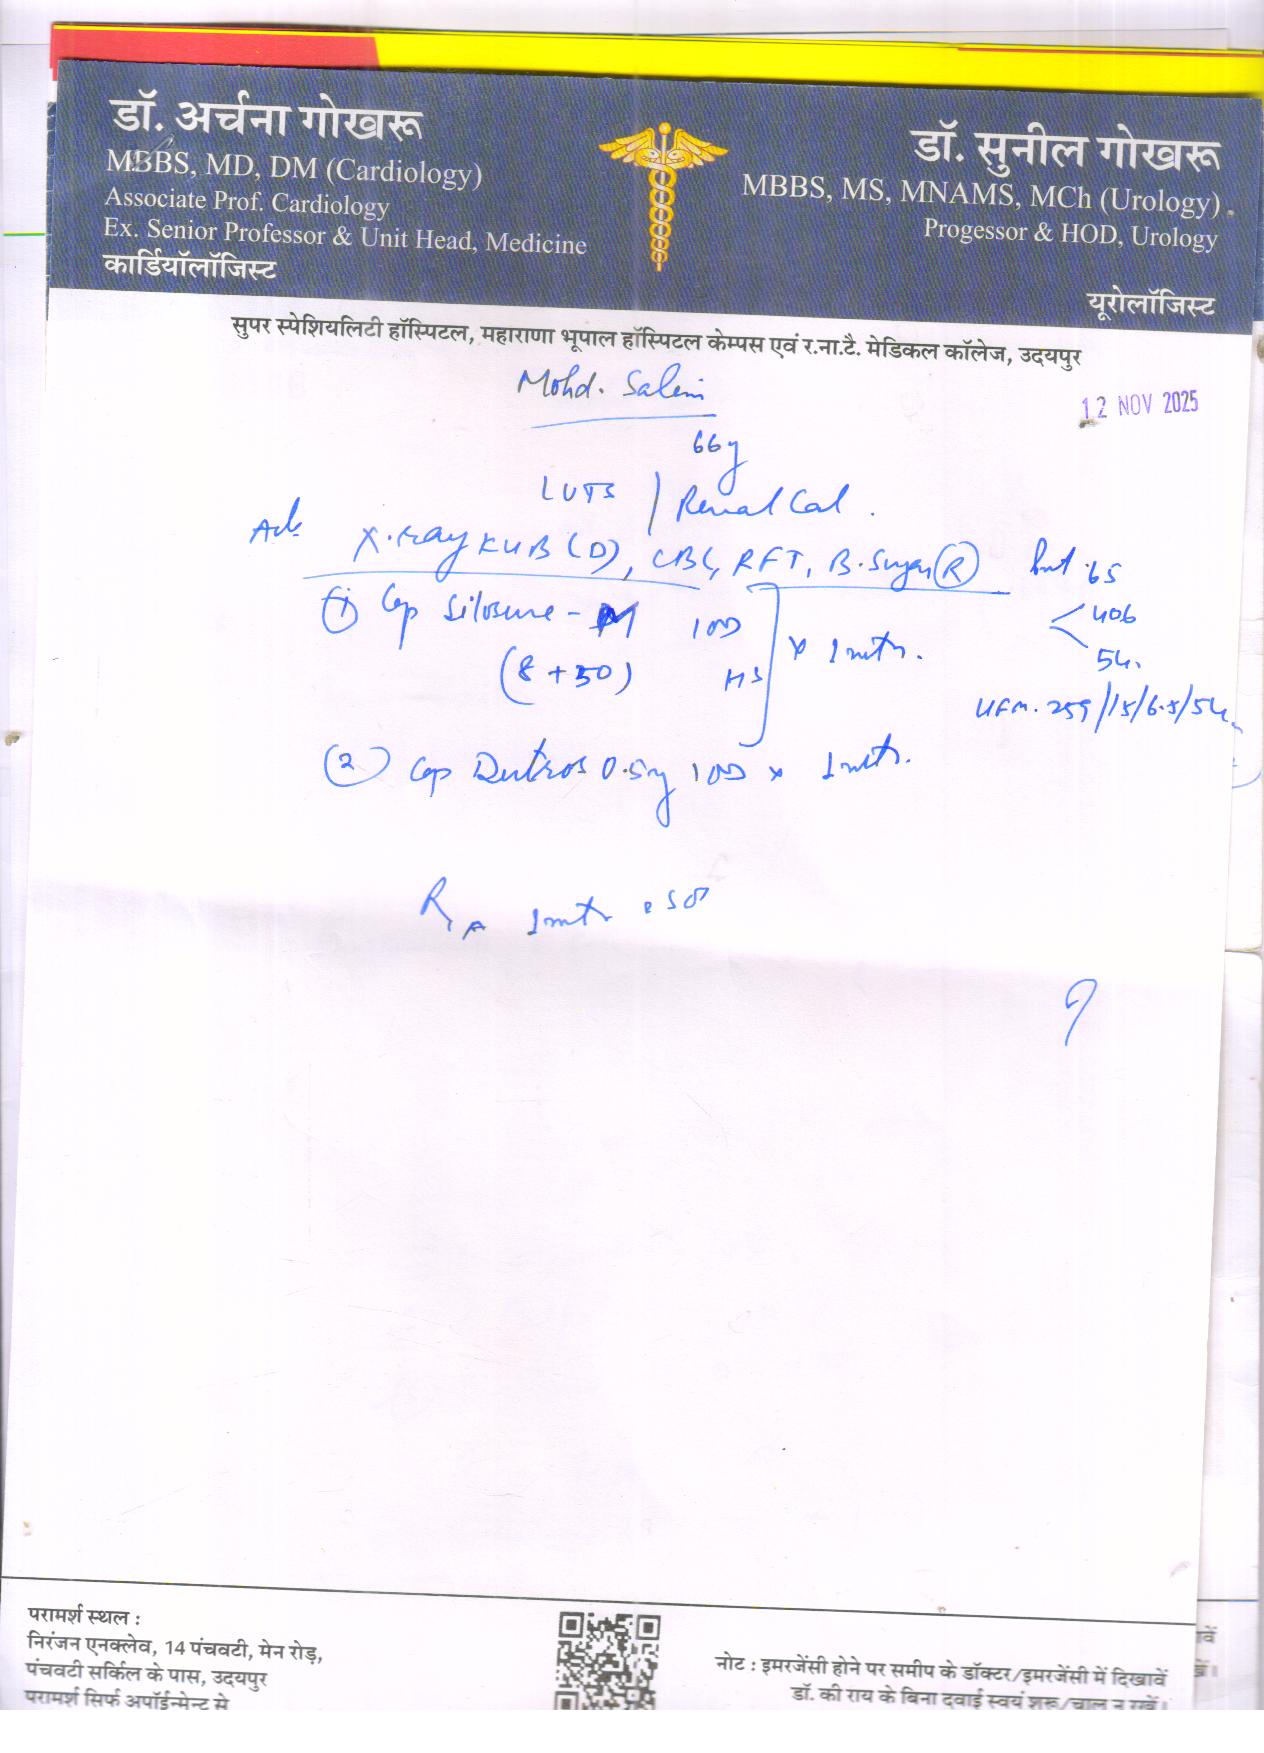 डॉ. अर्चना गोखरू
MBBS, MD, DM (Cardiology)
Associate Prof. Cardiology
Ex. Senior Professor & Unit Head, Medicine
कार्डियॉलॉजिस्ट
डॉ. सुनील गोखरू
MBBS, MS, MNAMS, MCh (Urology)
Progessor & HOD, Urology
यूरोलॉजिस्ट
सुपर स्पेशियलिटी हॉस्पिटल, महाराणा भूपाल हॉस्पिटल केम्पस एवं र.ना.टै. मेडिकल कॉलेज, उदयपुर
Mohd. Salim
12 NOV 2025
66y
LUTS / Renal Cal.
Adv X-ray KUB (D), CBC, RFT, B. Sugar (R)
65
406
54
(1) Cap Silosure - M 1OD
x 1 mth.
(8 + 50) HS
UFM. 259/15/6.5/54
(2) Cap Dutros 0.5mg 1OD x 1 mth.
1 mth SOS
परामर्श स्थल :
निरंजन एनक्लेव, 14 पंचवटी, मेन रोड़,
पंचवटी सर्किल के पास, उदयपुर
परामर्श सिर्फ अपॉईन्मेन्ट से
नोट : इमरजेंसी होने पर समीप के डॉक्टर/इमरजेंसी में दिखावें
डॉ. की राय के बिना दवाई स्वयं शुरू/चालू न रखें।